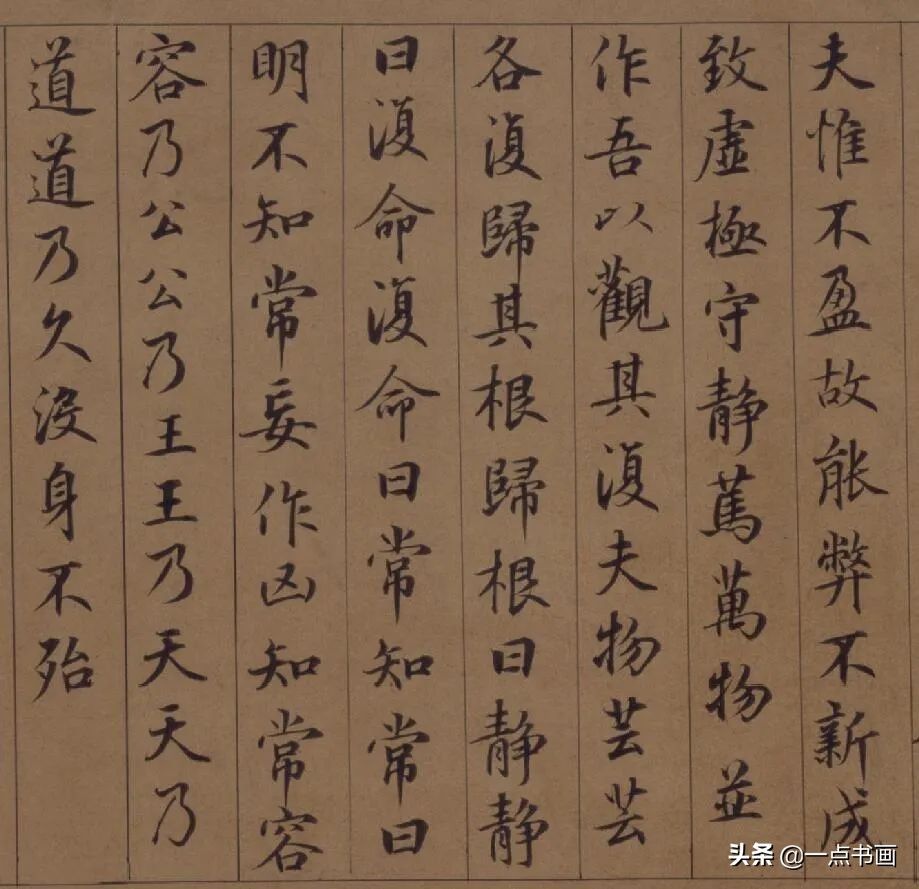 夫惟不盈故能弊不新成
致虛極守静篤萬物並
作吾以觀其復夫物芸芸
各復歸其根歸根曰静静
曰復命復命曰常知常曰
明不知常妄作凶知常容
容乃公公乃王王乃天天乃
道道乃久没身不殆
头条 @一点书画